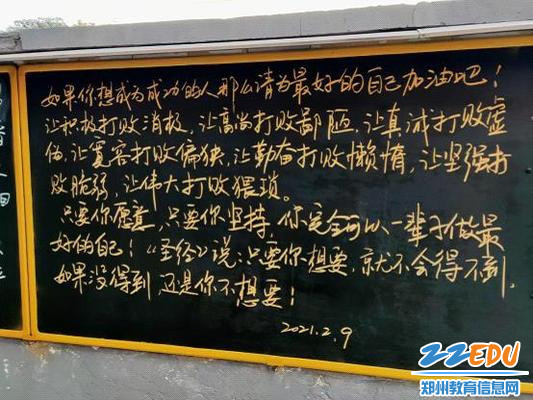 如果你想成为成功的人那么请为最好的自己加油吧!
让积极打败消极,让高尚打败鄙陋,让真诚打败虚
伪,让宽容打败偏狭,让勤奋打败懒惰,让坚强打
败脆弱,让伟大打败猥琐。
只要你愿意,只要你坚持,你完全可以一辈子做最
好的自己!《圣经》说:只要你想要,就不会得不到,
如果没得到,还是你不想要!
2021.2.9
ZZEDU
郑州教育信息网